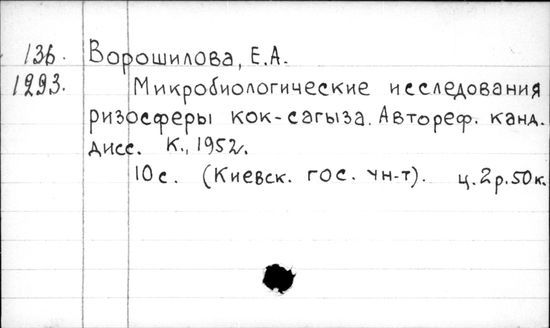 136. Ворошилова, Е.А.
1293. Микробиологические исследования
ризосферы кок-сагыза. Автореф. канд.
дисс. К., 1952.
10 с. (Киевск. гос. ун-т). ц. 2 р. 50 к.